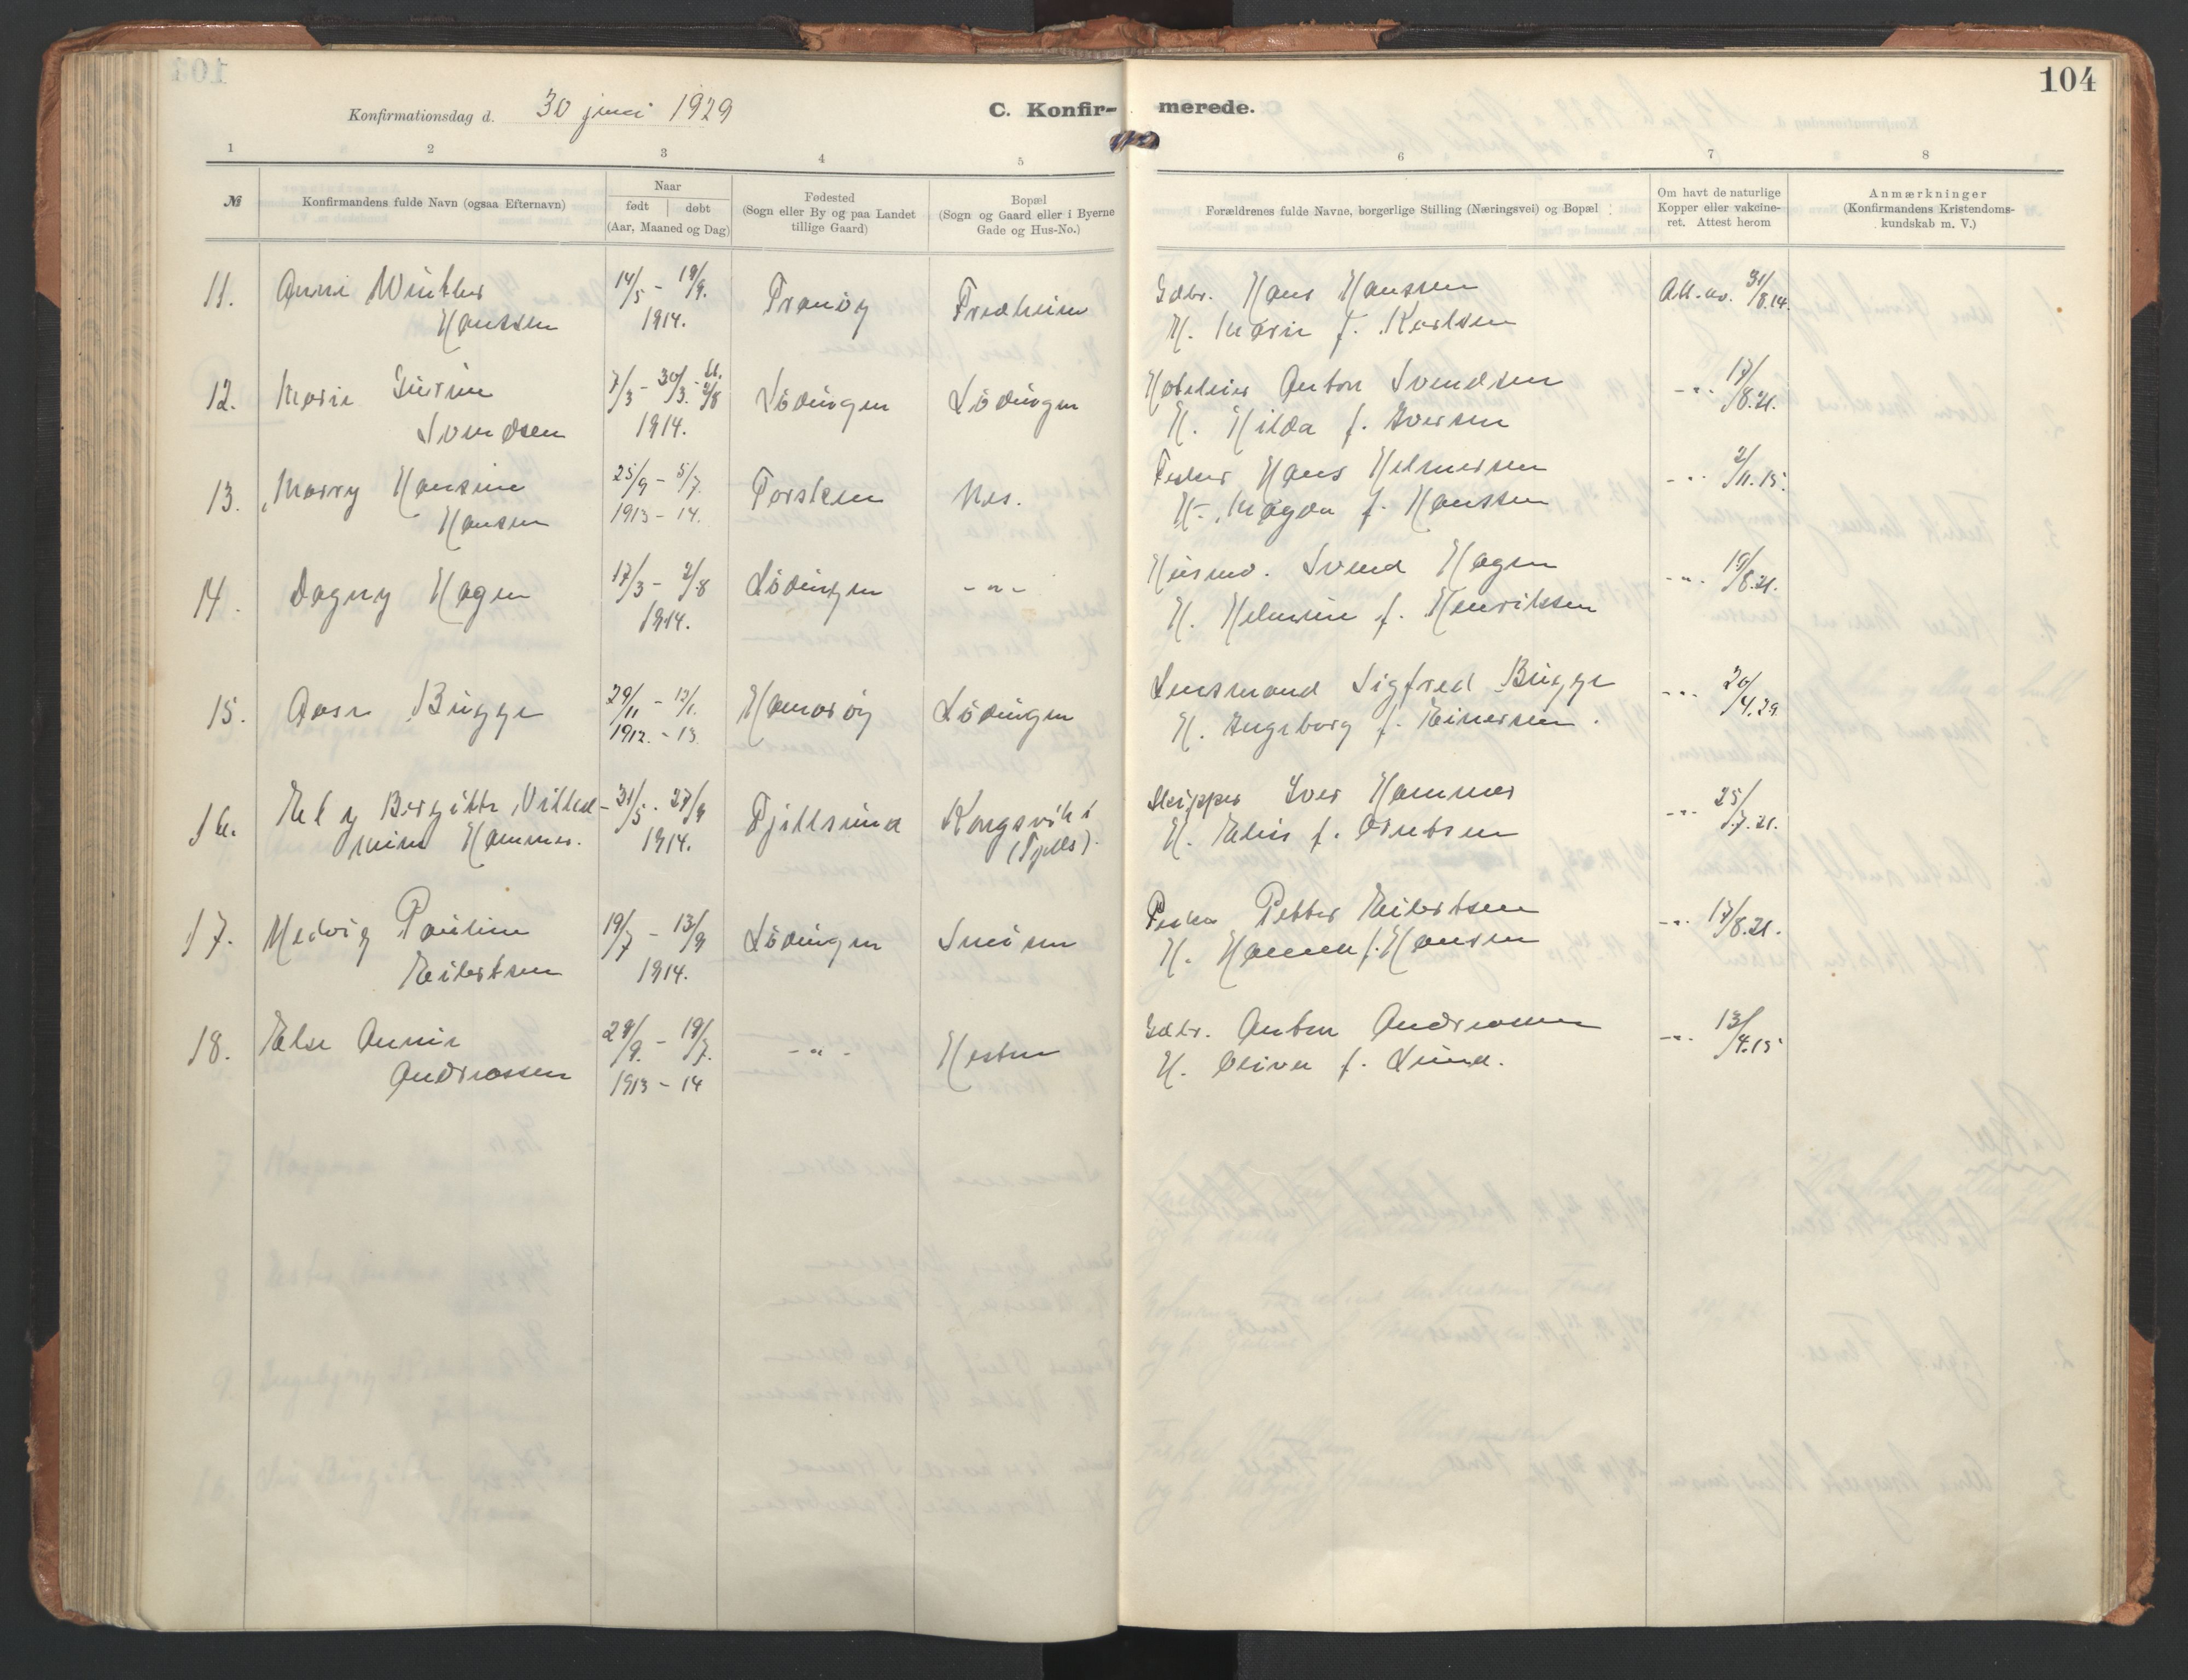 104
Konfirmationsdag d. 30 juni 1929
C. Konfir-merede.
1 2 3 4 5 6 7 8
№
Konfirmandens fulde Navn (ogsaa Efternavn)
Naar
født | døbt
(Aar, Maaned og Dag)
Fødested
(Sogn eller By og paa Landet
tillige Gaard)
Bopæl
(Sogn og Gaard eller i Byerne
Gade og Hus-No.)
Forældrenes fulde Navne, borgerlige Stilling (Næringsvei) og Bopæl
Om havt de naturlige
Kopper eller vakcine-
ret. Attest herom
Anmærkninger
(Konfirmandens Kristendoms-
kundskab m. V.)
11. Anni Winther 14/5 - 19/9. Tranøy Fredheim Gdbr. Hans Hanssen Att. av. 31/8.14.
Hanssen 1914. H. Marie f. Karlsen
12. Marie Gurine 7/3 - 30/3. - Lødingen Lødingen Anton Svendsen -"- 17/8.21.
Svendsen 1914. H. Hilda f. Iversen
13. Marry Hansine 25/9 - 5/7. Torsken Nes. Fisker Hans Helmersen -"- 2/11.15.
Hansen 1913 - 14. H. Magda f. Hanssen
14. Dagny Hagen 17/3 - 2/8 Lødingen -"- Husmd. Svend Hagen -"- 19/8.21.
1914. H. Helmine f. Henriksen
15. Aase Bugge 29/11 - 12/1. Hamarøy Lødingen Lensmand Sigfred Bugge -"- 20/4.29
1912. - 13. H. Ingeborg f. Einersen.
16. Ely Birgitte Vilhel- 31/5. 27/9 Tjeldsund Kongsvik i Skipper Iver Hammer -"- 25/7.21.
mine Hammer. 1914. (Tjelds). H. Elise f. Knutsen
17. Hedvig Pauline 19/7 - 13/9 Lødingen Snisen Fisker Petter Eilertsen -"- 17/8.21.
Eilertsen 1914. H. Hanna f. Hansen
18. Else Annie 29/9. - 19/7. -"- Hestun Gdbr. Anton Andreassen -"- 13/4.15
Andreassen 1913 - 14 H. Oliva f. Lund.